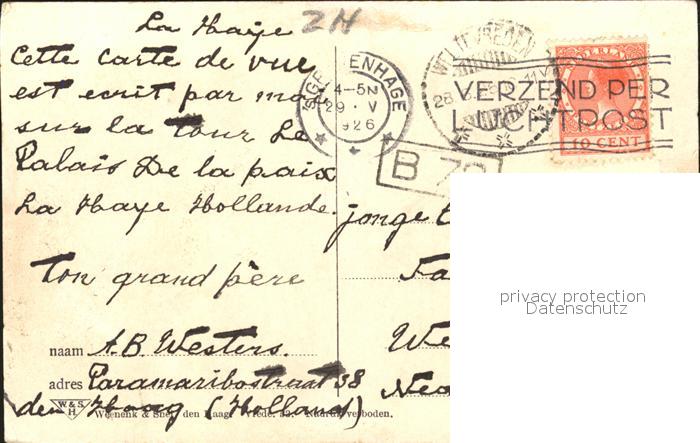 La Haye
2H
Cette carte de vue
est ecrit par moi
sur la tour Le
Palais De la paix
La Haye Hollande.
ton grand père
naam A.B. Westers.
adres Paramaribostraat 38
den Haag (Holland)
W.&S. H. Weenenk & Snel, den Haag verboden.
'S GRAVENHAGE
4-5N
29 . V
1926
WELTEVREDEN
VERZEND PER
LUCHTPOST
10 CENT
B 72
jonge
Fa
We
Ned
privacy protection
Datenschutz